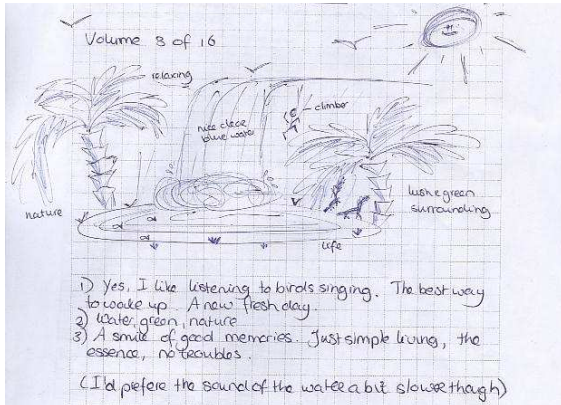 Volume 3 of 16
relaxing
climber
nice clear
blue water
lushe green
surrounding
nature
life
1) Yes, I like listening to birds singing. The best way
to wake up. A new fresh day.
2) Water, green, nature
3) A smile of good memories. Just simple living, the
essence, no troubles.
(I'd prefere the sound of the water a bit slower though)